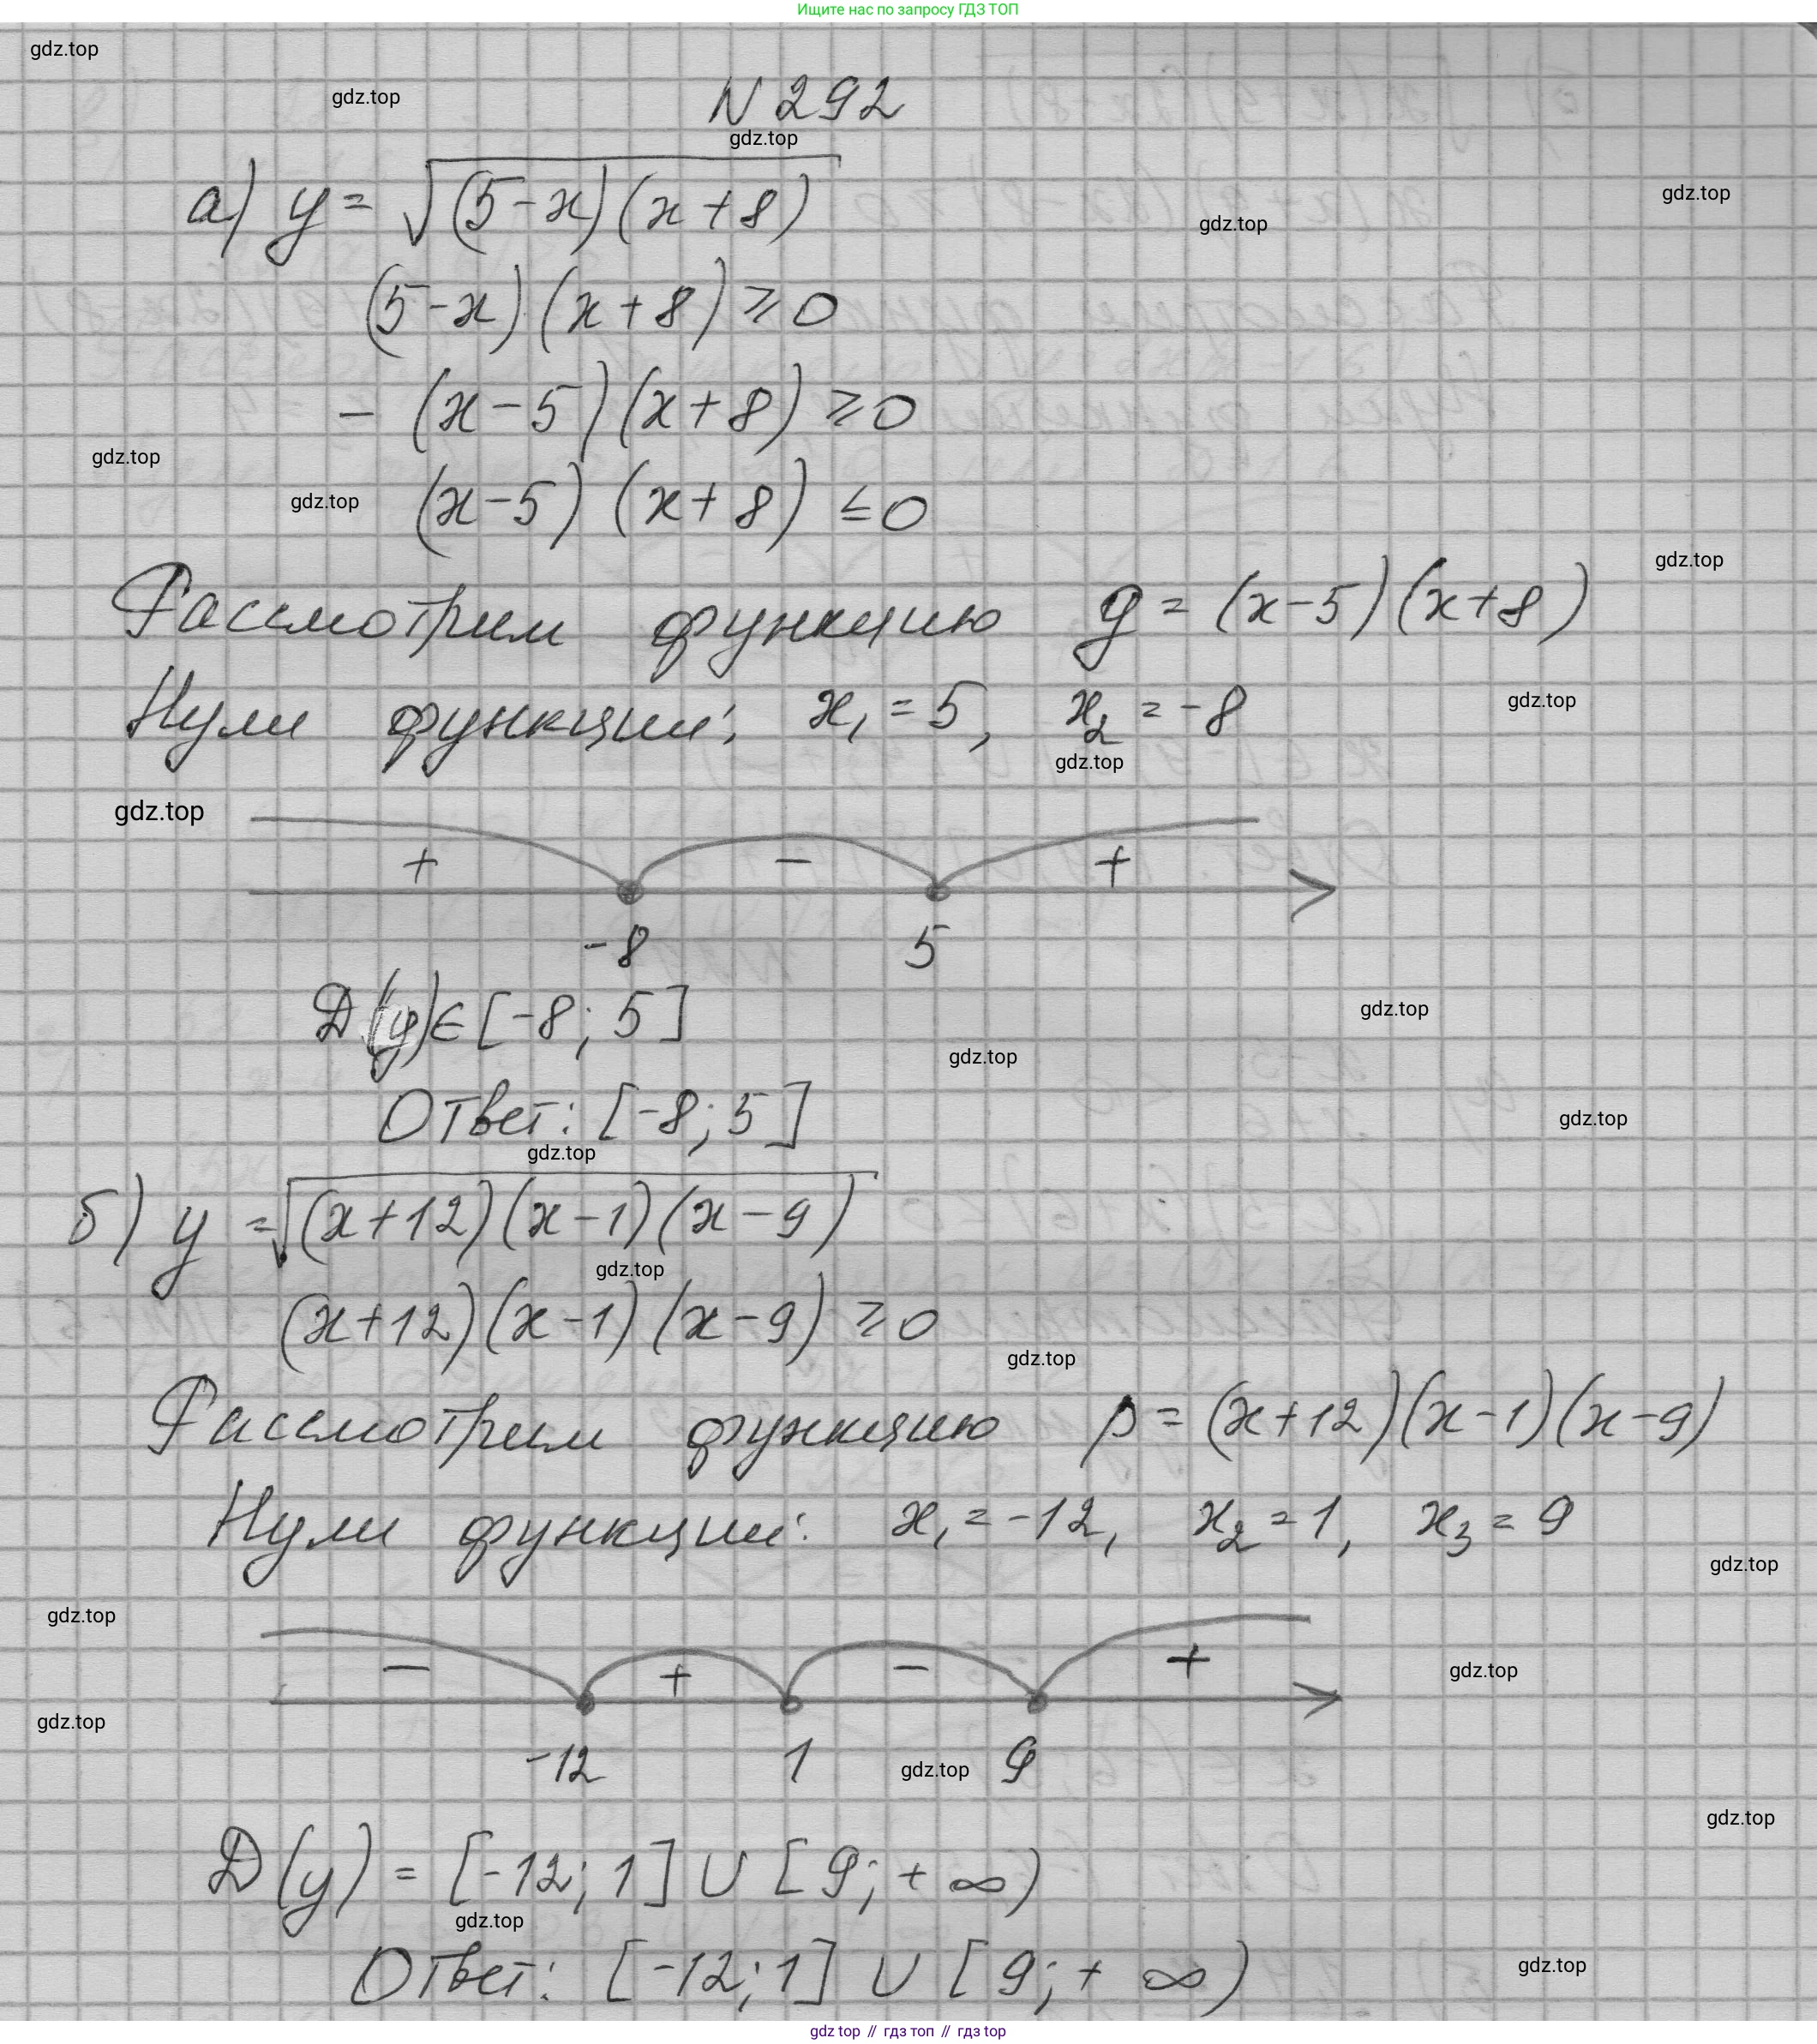 Ищите нас по запросу ГДЗ ТОП
gdz.top
gdz.top
N 292
gdz.top
а) y = √(5-x)(x+8)
gdz.top
gdz.top
(5-x)(x+8) ≥ 0
- (x-5)(x+8) ≥ 0
gdz.top
gdz.top
(x-5)(x+8) ≤ 0
gdz.top
Рассмотрим функцию g = (x-5)(x+8)
Нули функции: x₁ = 5, x₂ = -8
gdz.top
gdz.top
gdz.top
+ - +
-8 5
D(y) ∈ [-8; 5]
gdz.top
gdz.top
Ответ: [-8; 5]
gdz.top
gdz.top
б) y = √(x+12)(x-1)(x-9)
gdz.top
(x+12)(x-1)(x-9) ≥ 0
gdz.top
Рассмотрим функцию p = (x+12)(x-1)(x-9)
Нули функции: x₁ = -12, x₂ = 1, x₃ = 9
gdz.top
gdz.top
- + - +
gdz.top
gdz.top
-12 1 9
gdz.top
gdz.top
D(y) = [-12; 1] ∪ [9; + ∞)
gdz.top
Ответ: [-12; 1] ∪ [9; + ∞)
gdz.top
gdz top // гдз топ // гдз top